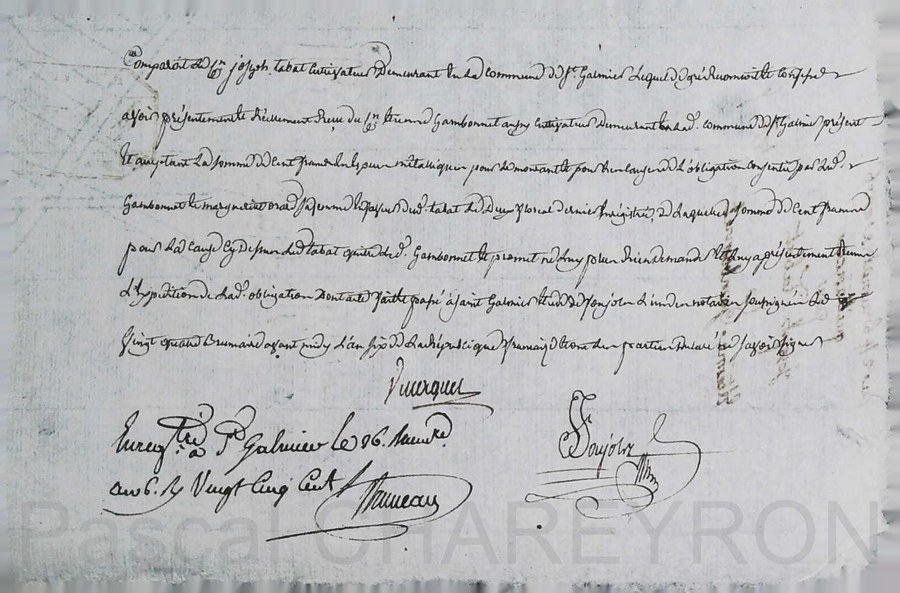 Comparoit le C.en joseph tabat Cultivateur Demeurant en la commune de St. Galmier Lequel de gré Reconnoit et confesse
avoir présentement et Réellement Reçu du C.en Etienne Gambonnet aussy Cultivateur Demeurant en lad. commune de St Galmier présent
Et acceptant La somme de Cent francs En Espèces métalliques pour le montant et pour Reulance de L'obligation consentie par led.
Gambonnet et marguerite sa femme En faveur dud. tabat Le Deux floreal dernier Enrégistrée, de Laquelle somme de Cent francs
pour La Cause Cy Dessus Led. tabat quitte led. Gambonnet et promet ne luy plus Rien Demander Et luy a présentement Remis
L'Expédition de Lad. obligation Dont acte fait et passé à Saint Galmier Etude de Ponjolz L'un des notaires soussignés Le
Vingt quatre Brumaire avant midy L'an six de la République française Et ont les parties Déclaré ne savoir signer
Enreg.tré à St Galmier le 26. Brum.re
an 6. Ry Vingt Cinq Cent.
Bruneau
Pascal CHAREYRON